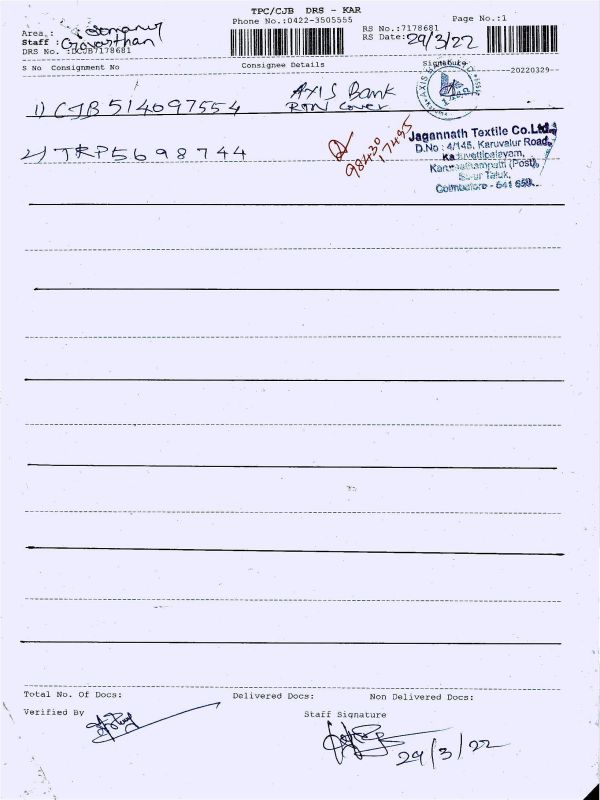 TPC/CJB DRS - KAR
Phone No.:0422-3505555
RS No.:7178681
Page No.:1
Area :
Staff : Govarthan
RS Date: 29/3/22
DRS No. :DCJB7178681
S No Consignment No
Consignee Details
Signature
20220329
1) CJB514097554
AXIS Bank
RTN Cover
2) TRP5698744
98430
17495
Jagannath Textile Co.Ltd.,
D.No : 4/145, Karuvalur Road,
Kaduvettipalayam,
Karumathampatti (Post),
Sulur Taluk,
Coimbatore - 641 659.
Total No. Of Docs:
Delivered Docs:
Non Delivered Docs:
Verified By
Staff Signature
29/3/22